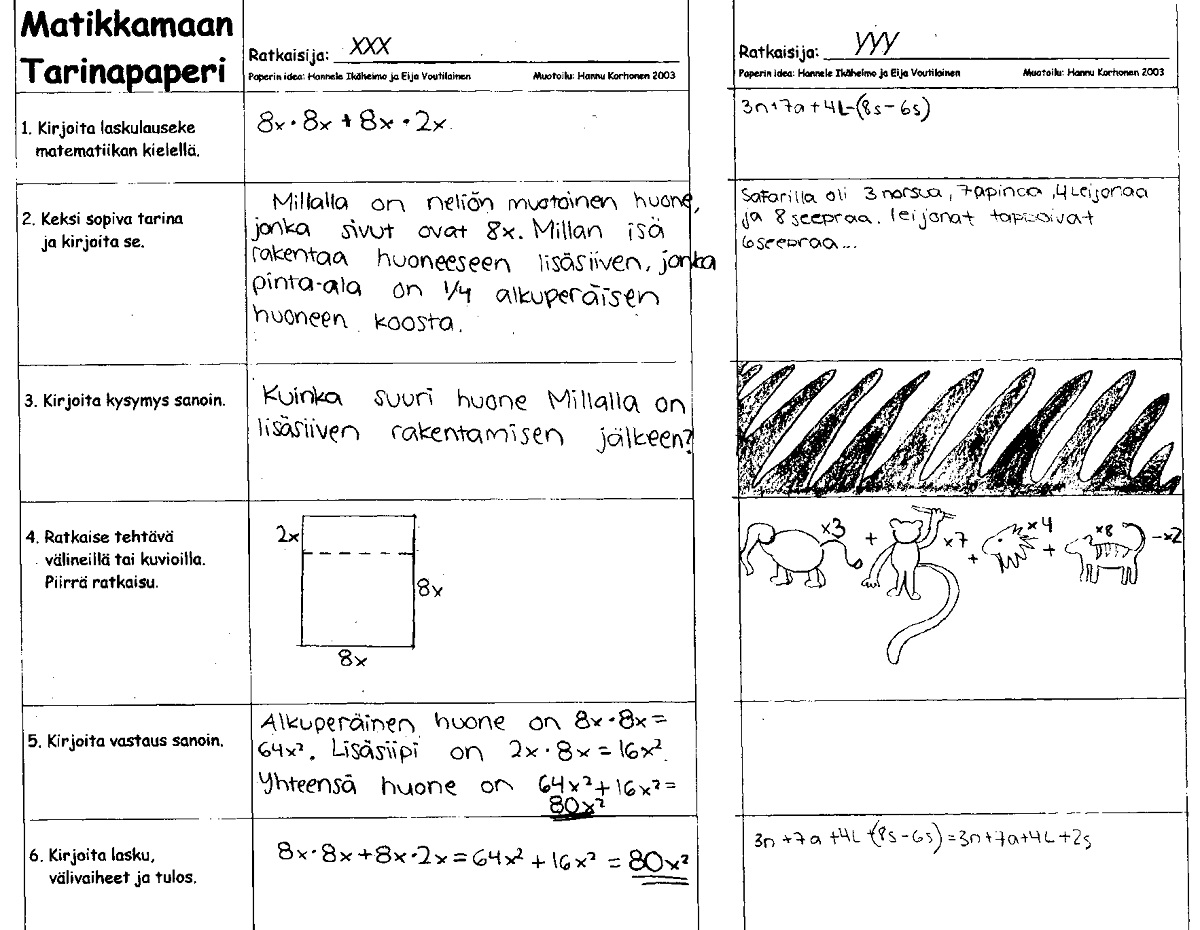 Matikkamaan
Tarinapaperi
Ratkaisija: XXX
Paperin idea: Hannele Ikäheimo ja Eija Voutilainen Muotoilu: Hannu Korhonen 2003
Ratkaisija: YYY
Paperin idea: Hannele Ikäheimo ja Eija Voutilainen Muotoilu: Hannu Korhonen 2003
1. Kirjoita laskulauseke
matematiikan kielellä.
8x · 8x + 8x · 2x
3n+7a+4L-(8s-6s)
2. Keksi sopiva tarina
ja kirjoita se.
Millalla on neliön muotoinen huone,
jonka sivut ovat 8x. Millan isä
rakentaa huoneeseen lisäsiiven, jonka
pinta-ala on 1/4 alkuperäisen
huoneen koosta.
Safarilla oli 3 norsua, 7 apinaa, 4 Leijonaa
ja 8 seepraa. leijonat tappoivat
6 seepraa...
3. Kirjoita kysymys sanoin.
Kuinka suuri huone Millalla on
lisäsiiven rakentamisen jälkeen?
4. Ratkaise tehtävä
välineillä tai kuvioilla.
Piirrä ratkaisu.
2x
8x
8x
x3 + x7 + x4 + x8 -x2
5. Kirjoita vastaus sanoin.
Alkuperäinen huone on 8x·8x=
64x². Lisäsiipi on 2x·8x=16x².
Yhteensä huone on 64x²+16x²=
80x²
6. Kirjoita lasku,
välivaiheet ja tulos.
8x·8x+8x·2x=64x²+16x²=80x²
3n+7a+4L+(8s-6s)=3n+7a+4L+2s